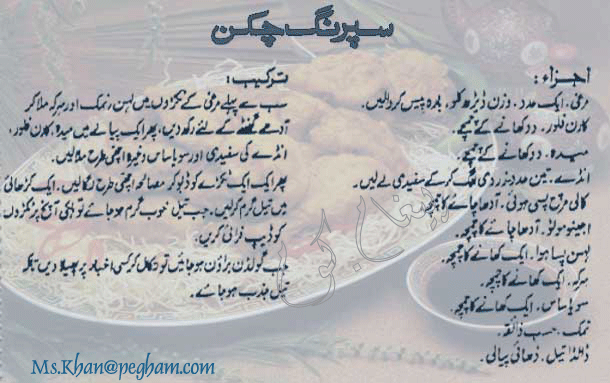 سپرنگ چکن
اجزاء:
مرغی۔ ایک عدد۔ وزن ڈیڑھ کلو، بارہ پیس کر والیں۔
کارن فلور۔ دو کھانے کے چمچے۔
میدہ۔ دو کھانے کے چمچے۔
انڈے۔ تین عدد زردی الگ کر کے سفیدی لے لیں۔
کالی مرچ پسی ہوئی۔ آدھا چائے کا چمچہ۔
اجینو موتو۔ آدھا چائے کا چمچہ۔
لہسن پسا ہوا۔ ایک کھانے کا چمچہ۔
سرکہ۔ ایک کھانے کا چمچہ۔
سویا ساس۔ ایک کھانے کا چمچہ۔
نمک۔ حسب ذائقہ۔
ڈالڈا تیل۔ ڈھائی پیالی۔
ترکیب:
سب سے پہلے مرغی کے ٹکڑوں میں لہسن، نمک اور سرکہ ملا کر
آدھے گھنٹے کے لئے رکھ دیں، پھر ایک پیالے میں میدہ، کارن فلور،
انڈے کی سفیدی اور سویا ساس وغیرہ اچھی طرح ملا لیں۔
پھر ایک ایک ٹکڑے کو ڈبو کر مصالحہ اچھی طرح لگا لیں۔ ایک کڑھائی
میں تیل گرم کر لیں۔ جب تیل خوب گرم ہو جائے تو ہلکی آنچ پر ٹکڑوں
کو ڈیپ فرائی کریں۔
جب گولڈن براؤن ہو جائیں تو نکال کر کسی اخبار پر پھیلا دیں تاکہ
تیل جذب ہو جائے۔
پیغام
Ms.Khan@pegham.com